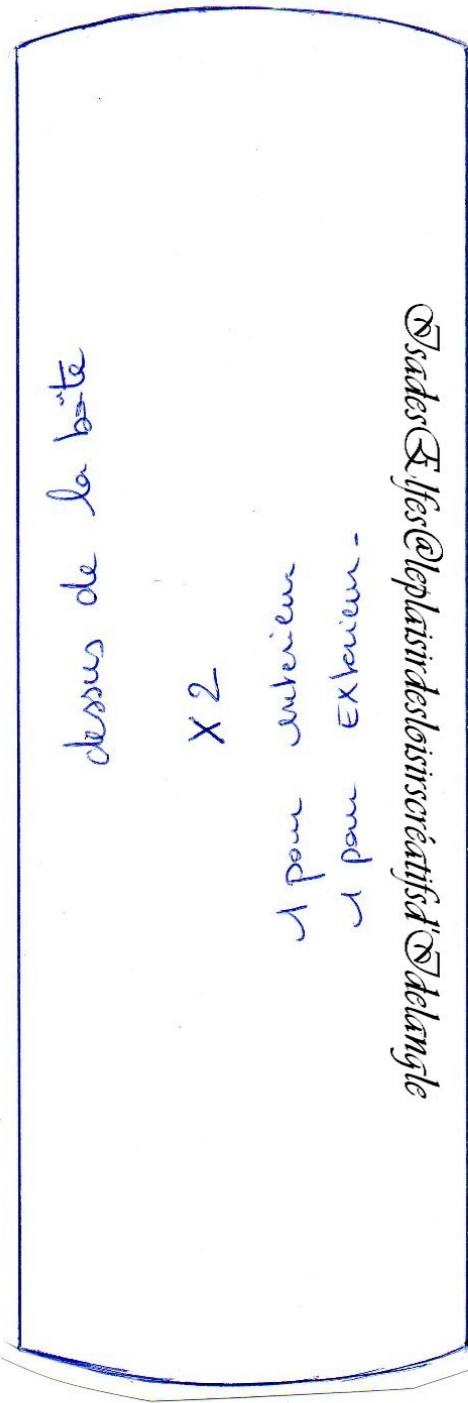 dessus de la boîte
X 2
1 pour intérieur
1 pour EXtérieur.
IsadesElfes@leplaisirdesloisirscréatifsd'Idelangle